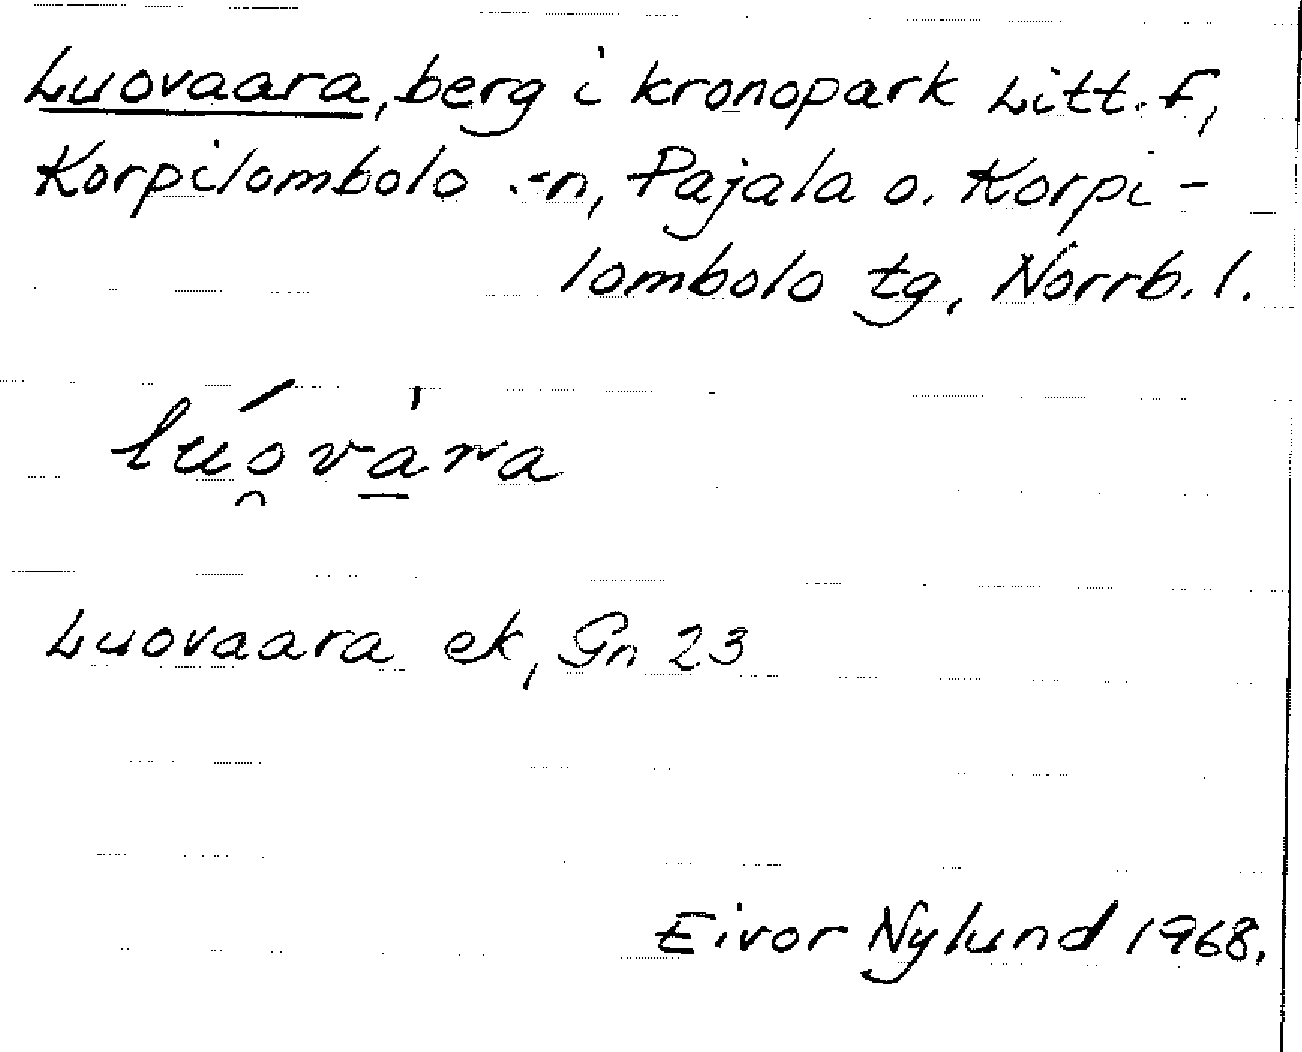 Luovaara, berg i kronopark Litt. F,
Korpilombolo sn, Pajala o. Korpi-
lombolo tg, Norrb. l.
lu̯óvà̱ra
Luovaara ek, Gn 23
Eivor Nylund 1968.